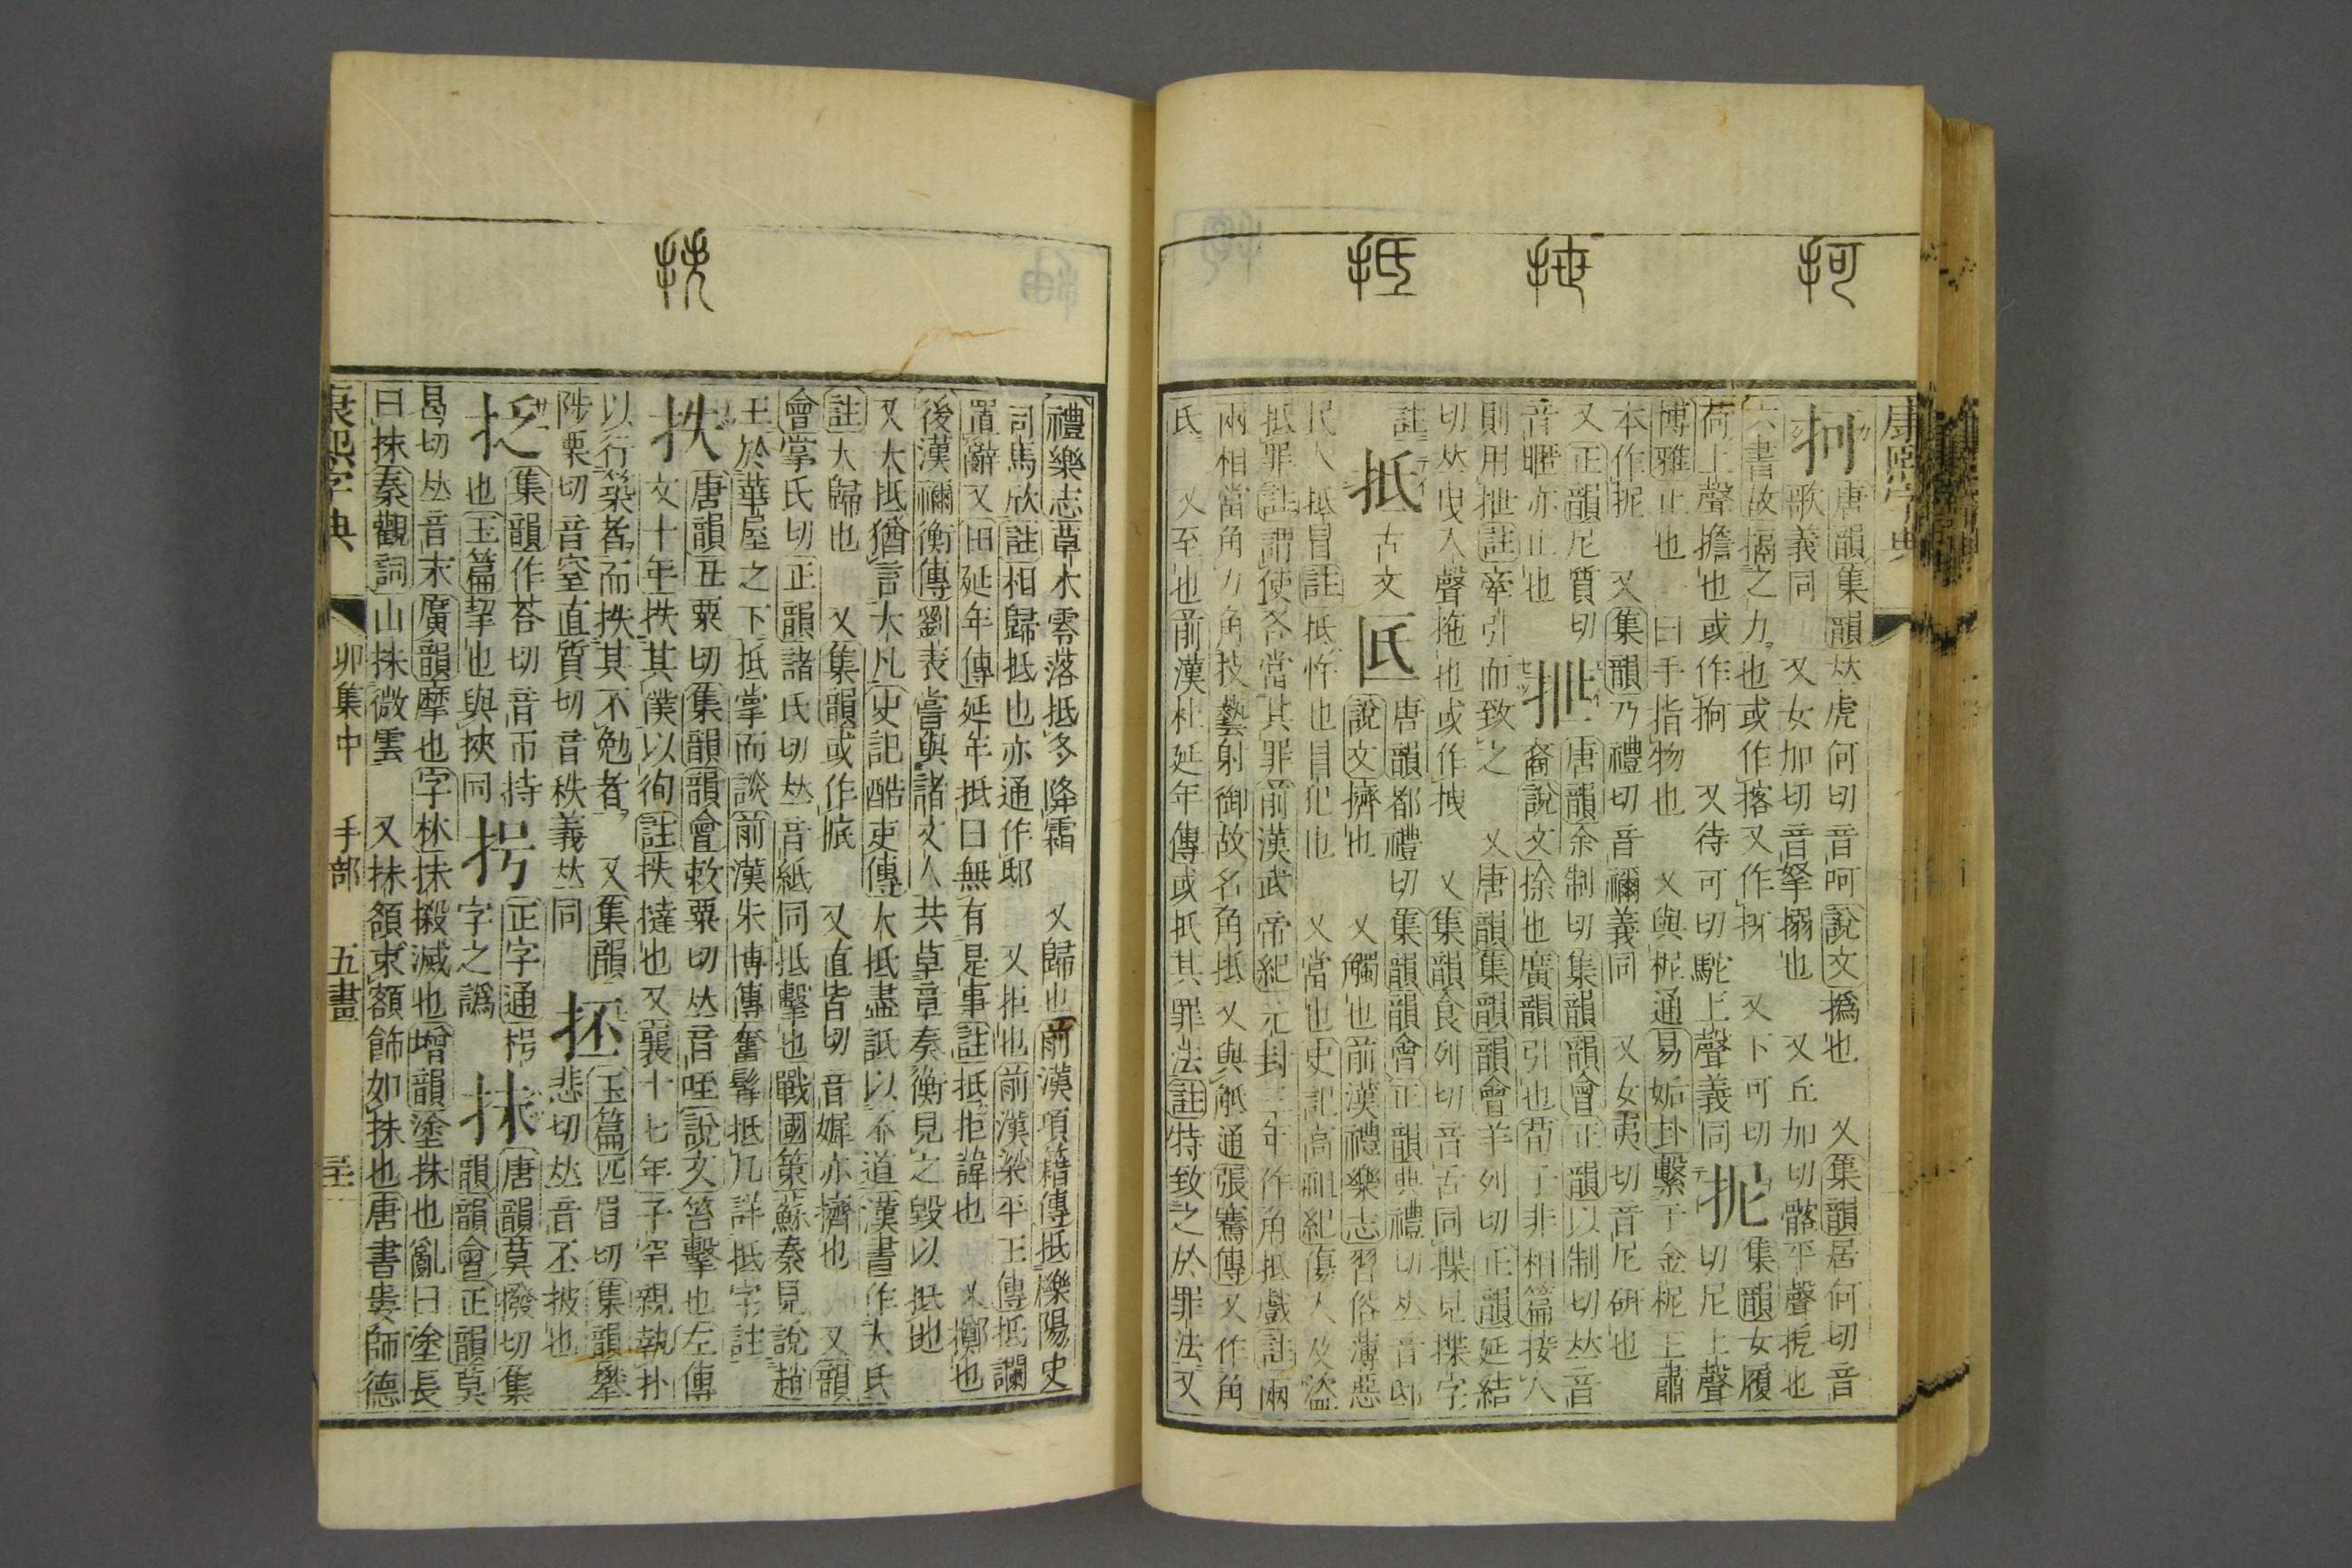 柯 抴 抵
康熙字典
抲 唐韻集韻𠀤虎何切音呵說文撝也 又集韻居何切音
歌義同 又女加切音拏搦也 又丘加切髂平聲扼也
六書故搹之力也或作㨰又作抲 又下可切
荷上聲擔也或作抲 又待可切駝上聲義同 抳 集韻女履切尼上聲
博雅止也 一曰手指物也 又與柅通易姤卦繫于金柅王肅
本作抳 又集韻乃禮切音禰義同 又女夷切音尼研也
又正韻尼質切音暱亦止也 抴 唐韻余制切集韻韻會正韻以制切𠀤音
裔說文捈也廣韻引也荀子非相篇接人
則用抴註牽引而致之 又唐韻集韻韻會羊列切正韻延結
切𠀤曳入聲拖也或作拽 又集韻食列切音舌同揲見揲字
註 抵 古文 㡳 唐韻都禮切集韻韻會正韻典禮切𠀤音邸
說文擠也 又觸也前漢禮樂志習俗薄惡
民人抵冒註抵忤也冒犯也 又當也史記高祖紀傷人及盜
抵罪註謂使各當其罪前漢武帝紀元封三年作角抵戲註兩
兩相當角力角技藝射御故名角抵又與觝通張騫傳又作角
氐 又至也前漢杜延年傳或抵其罪法註特致之於罪法又
抶
禮樂志草木零落抵冬降霜 又歸也前漢項籍傳抵櫟陽史
司馬欣註相歸抵也亦通作邸 又拒也前漢梁平王傳抵讕
置辭又田延年傳延年抵曰無有是事註抵拒諱也 又擲也
後漢禰衡傳劉表嘗與諸文人共草章奏衡見之毀以抵地
又大抵猶言大凡史記酷吏傳大抵盡詆以不道漢書作大氐
註大歸也 又集韻或作㡳 又直皆切音㜑亦擠也 又韻
會掌氏切正韻諸氏切𠀤音紙同扺擊也戰國策蘇秦見說趙
王於華屋之下抵掌而談前漢朱博傳奮髯抵几詳扺字註
抶 唐韻丑栗切集韻韻會敕栗切𠀤音咥說文笞擊也左傳
文十年抶其僕以徇註抶撻也又襄十七年子罕親執扑
以行築者而抶其不勉者 又集韻
陟栗切音窒直質切音秩義𠀤同 抷 玉篇匹眉切集韻攀悲切𠀤音丕披也
抸 集韻作荅切音帀持
也玉篇挐也與挾同 拐 正字通枴字之譌 抹 唐韻莫撥切集韻韻會正韻莫
曷切𠀤音末廣韻摩也字林抹摋滅也增韻塗抹也亂曰塗長
曰抹秦觀詞山抹微雲 又抹額束額飾如抹也唐書婁師德
康熙字典 卯集中 手部 五畫